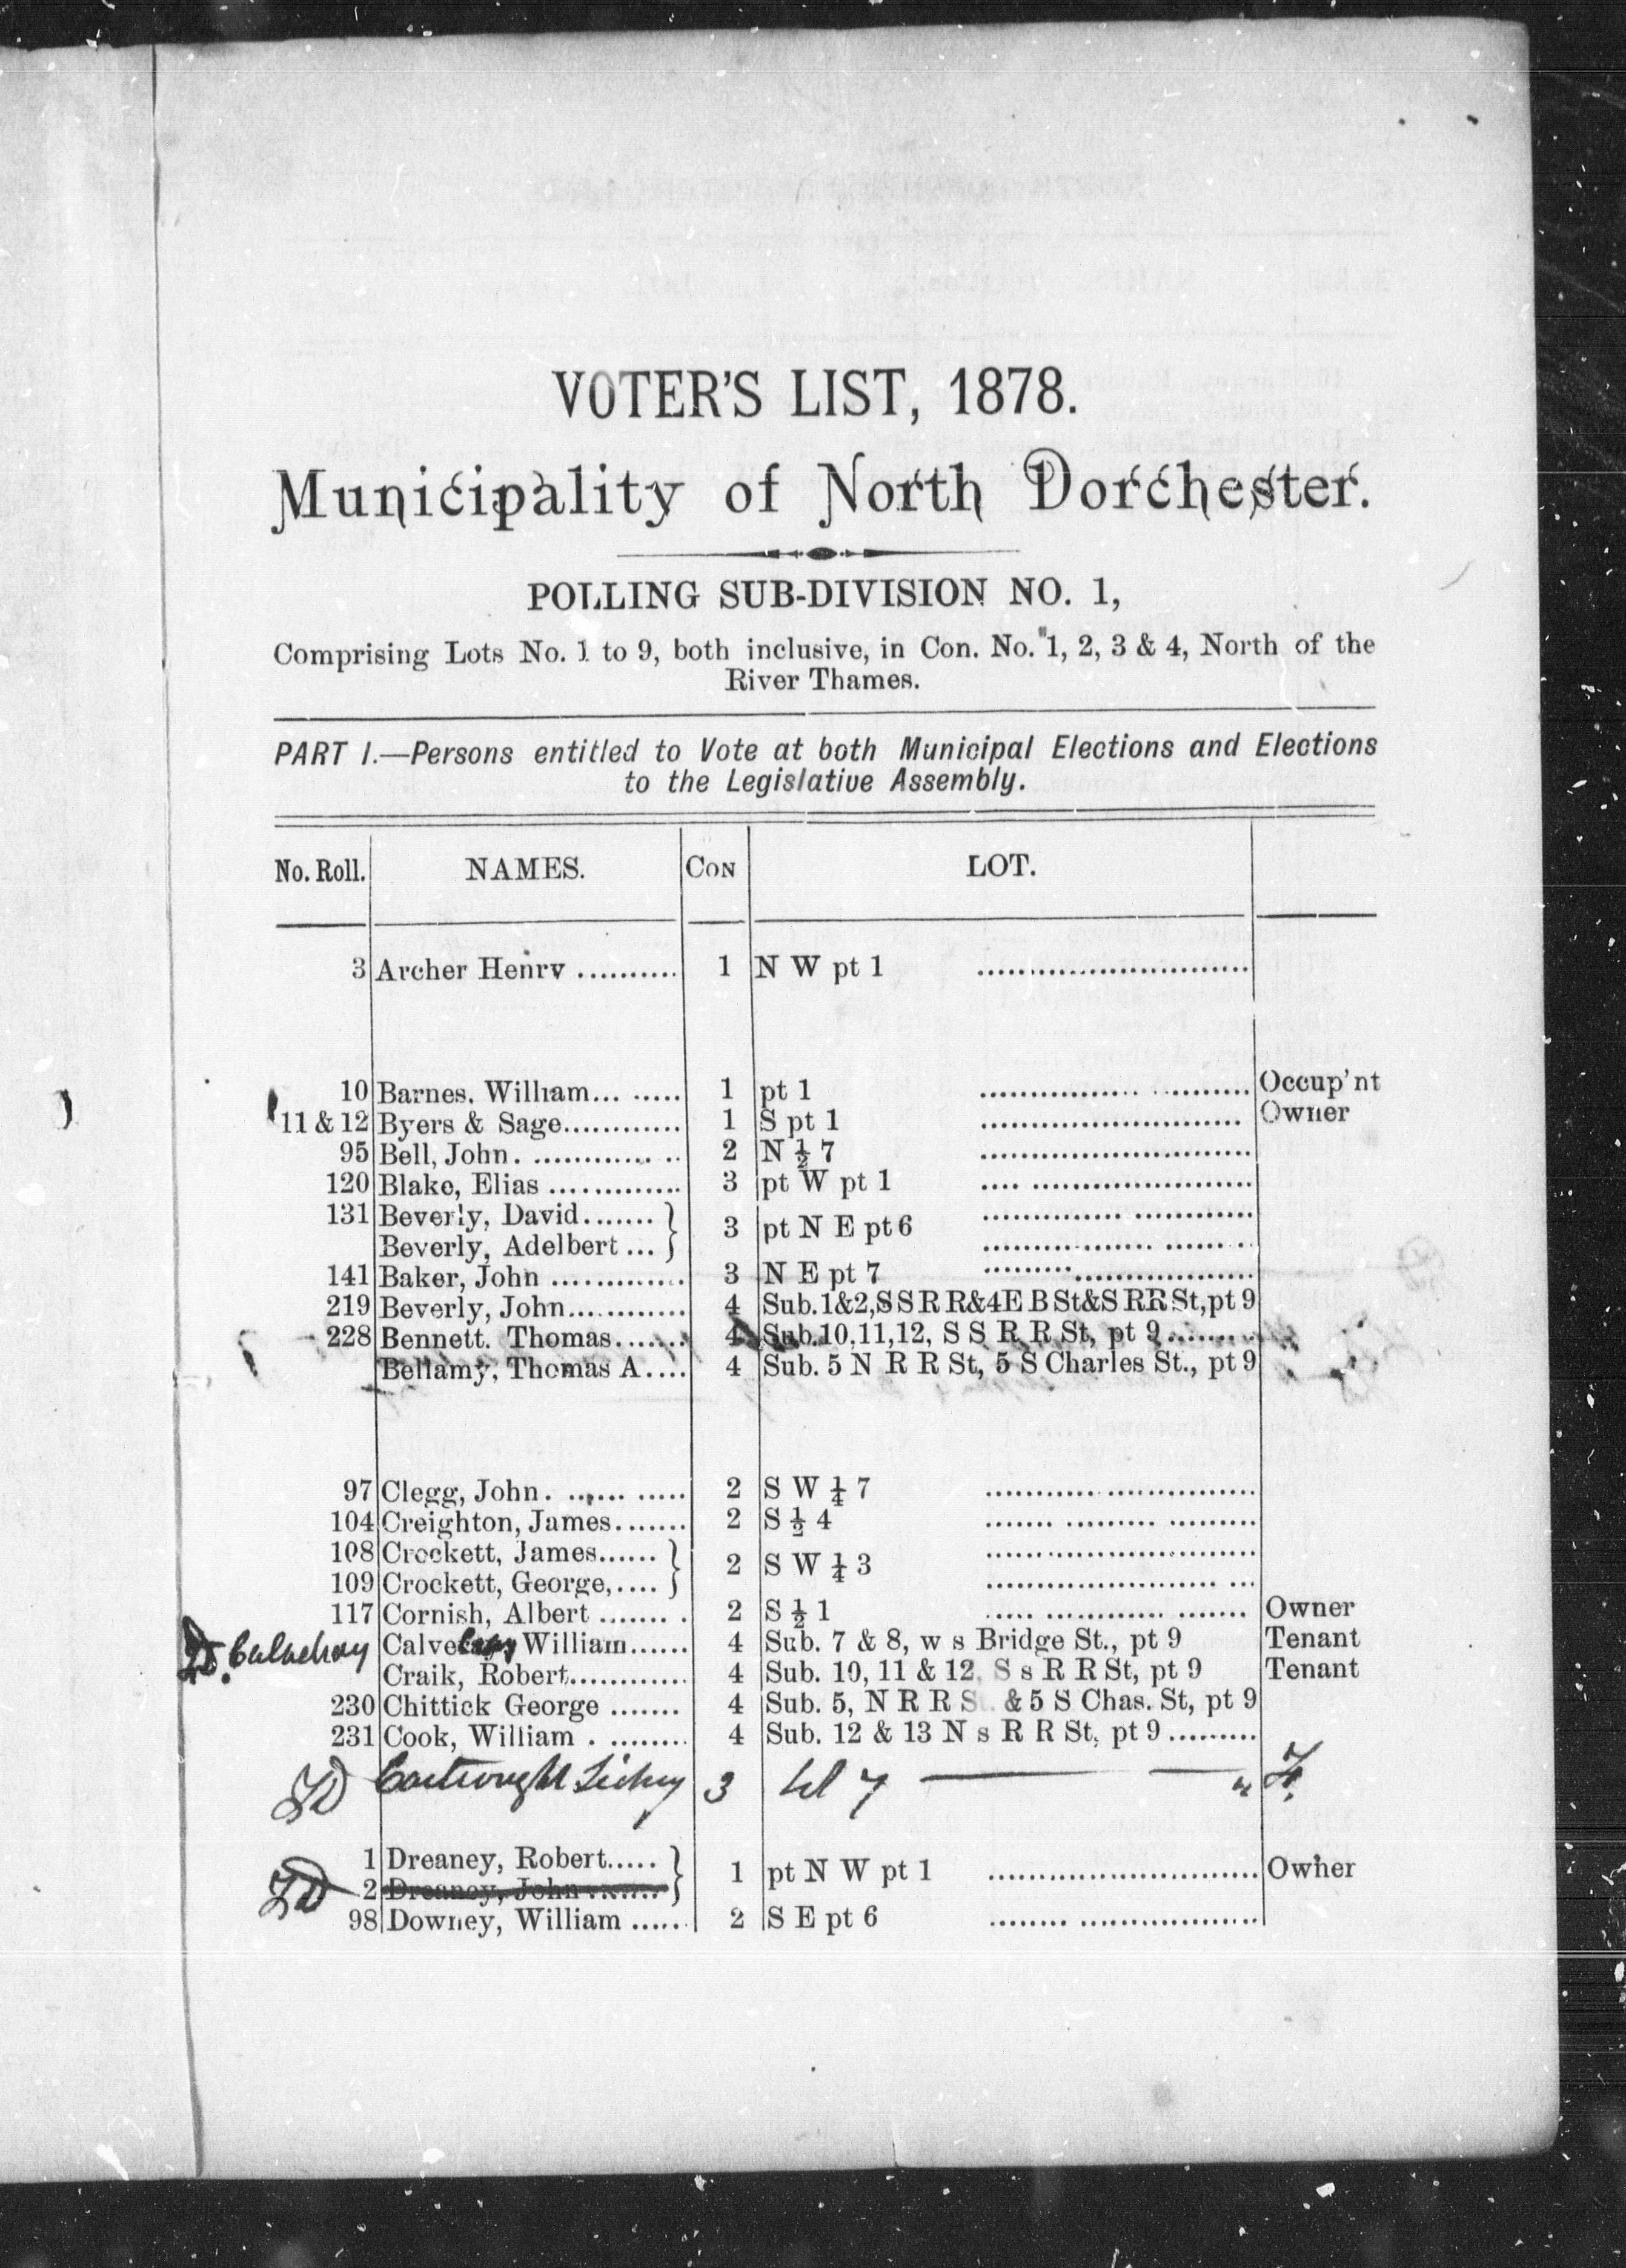 VOTER'S LIST, 1878.
Municipality of North Dorchester.
POLLING SUB-DIVISION NO. 1,
Comprising Lots No. 1 to 9, both inclusive, in Con. No. 1, 2, 3 & 4, North of the
River Thames.
PART I.—Persons entitled to Vote at both Municipal Elections and Elections
to the Legislative Assembly.
No. Roll. NAMES. CON LOT.
3 Archer Henry .......... 1 N W pt 1 ...........................
10 Barnes. William... ..... 1 pt 1 ............... .......... Occup'nt
11 & 12 Byers & Sage............ 1 S pt 1 .......................... Owner
95 Bell, John. ............. .. 2 N ½ 7 ...........................
120 Blake, Elias .............. 3 pt W pt 1 .... ......................
131 Beverly, David....... } 3 pt N E pt 6 .............. ............
Beverly, Adelbert ... } ................. ...... ..
141 Baker, John .............. 3 N E pt 7 ...........................
219 Beverly, John............ 4 Sub. 1&2, S S R R&4E B St&S RR St, pt 9
228 Bennett. Thomas....... 4 Sub. 10, 11, 12, S S R R St, pt 9 .........
Bellamy, Thomas A.... 4 Sub. 5 N R R St, 5 S Charles St., pt 9
97 Clegg, John. ...... ..... 2 S W ¼ 7 ........... ...............
104 Creighton, James....... 2 S ½ 4 ....... ......... .........
108 Crockett, James...... } 2 S W ¼ 3 ...........................
109 Crockett, George,.... } ....................... ...
117 Cornish, Albert ....... . 2 S ½ 1 ..... ............ ....... Owner
Calve William...... 4 Sub. 7 & 8, w s Bridge St., pt 9 Tenant
Craik, Robert............ 4 Sub. 10, 11 & 12, S s R R St, pt 9 Tenant
230 Chittick George ....... 4 Sub. 5, N R R St. & 5 S Chas. St, pt 9
231 Cook, William . ........ 4 Sub. 12 & 13 N s R R St, pt 9 .........
3 7
1 Dreaney, Robert..... } 1 pt N W pt 1 ........................... Owner
2 Dreaney, John ....... }
98 Downey, William ...... 2 S E pt 6 ........ ..................